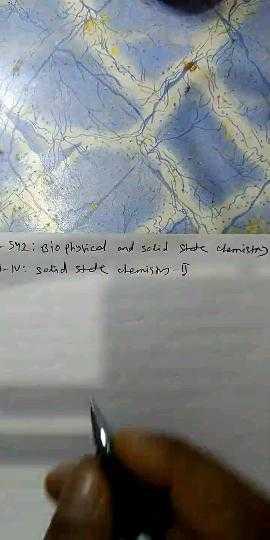 - 542: Bio physical and solid state chemistry
-IV: solid state chemistry II